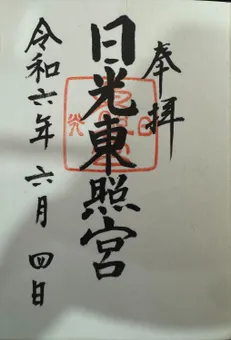 奉拝
日光東照宮
令和六年六月四日